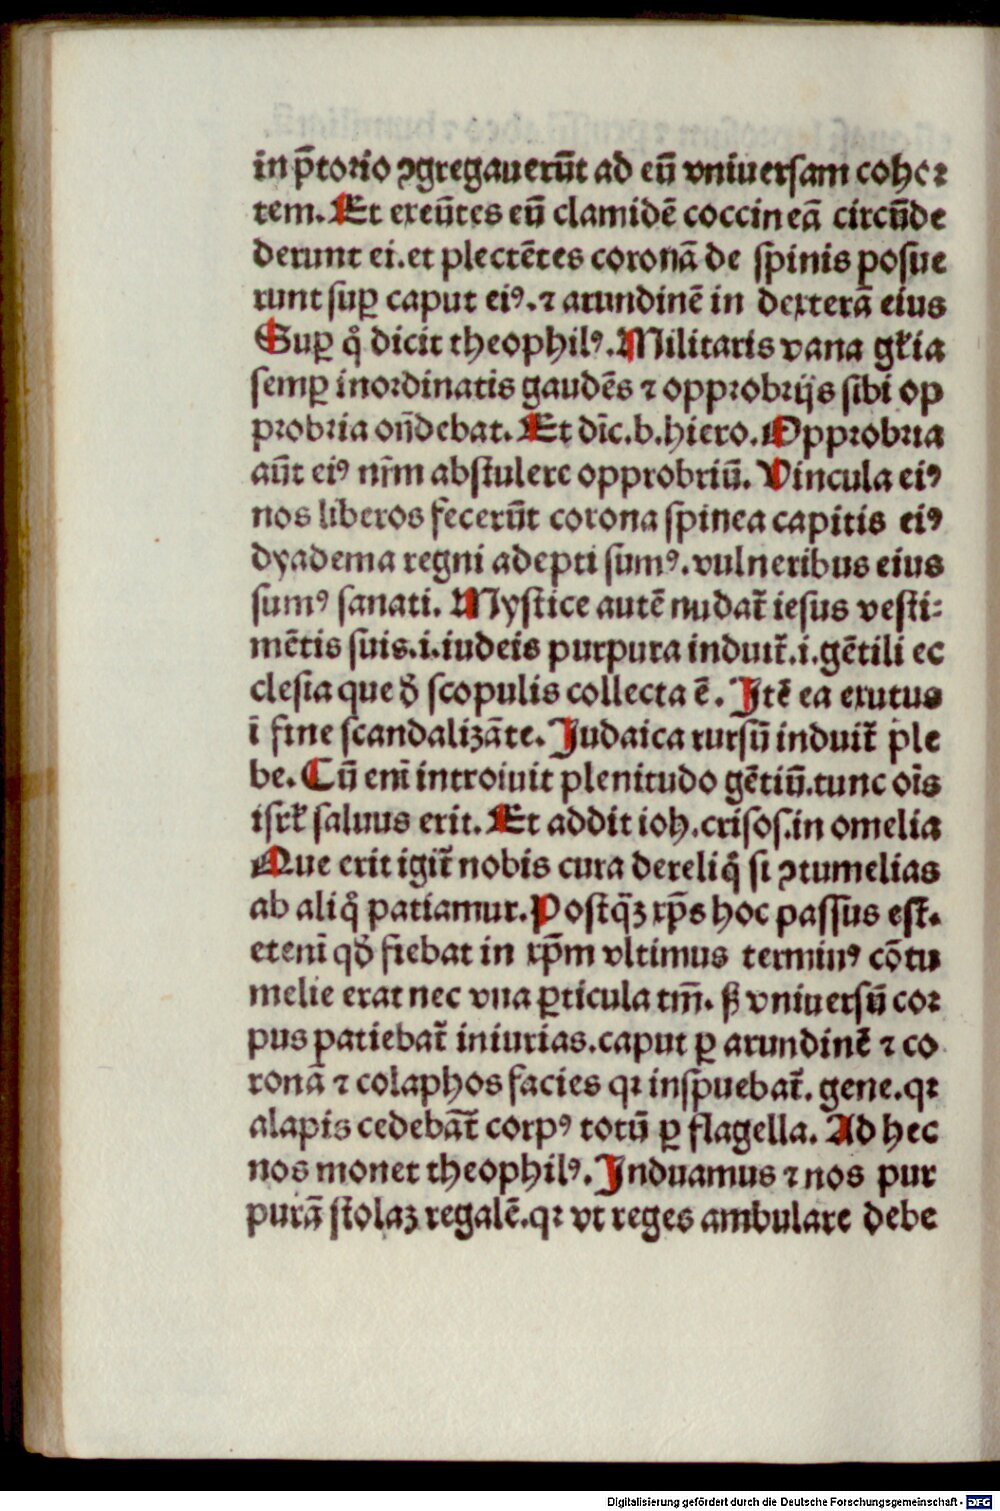 in p̄torio ꝯgregauerūt ad eū vniuersam cohoꝛ
tem. Et exeūtes eū clamidē coccineā circūde
derunt ei. et plectētes coronā de spinis posue
runt suꝑ caput eiꝰ. ⁊ arundinē in dexterā eius
Suꝑ qͦ dicit theophilꝰ. Militaris vana gl̄ia
semꝑ inoꝛdinatis gaudēs ⁊ oppꝛobꝛijs sibi op
pꝛobꝛia on̄debat. Et dīc. b. hiero. Oppꝛobꝛia
aūt eiꝰ nr̄m abstulere oppꝛobꝛiū. Vincula eiꝰ
nos liberos fecerūt corona spinea capitis eiꝰ
dyadema regni adepti sumꝰ. vulneribus eius
sumꝰ sanati. Mystice autē nudat̄ iesus vesti-
mētis suis. i. iudeis purpura induit̄. i. gētili ec
clesia que đ scopulis collecta ē. Itē ea exutus
ī fine scandalizāte. Iudaica rursū induit̄ ple
be. Cū enī introiuit plenitudo gētiū. tunc oīs
isrl̄ saluus erit. Et addit ioh. crisos. in omelia
Que erit igit̄ nobis cura dereliqͦ si ꝯtumelias
ab aliqͦ patiamur. Postq̄ꝫ xp̄s hoc passus est.
etenī qđ fiebat in xp̄m vltimus terminꝰ cōtu
melie erat nec vna ꝑticula tm̄. ſꝫ vniuersū coꝛ
pus patiebat̄ iniurias. caput ꝑ arundinē ⁊ co
ronā ⁊ colaphos facies qꝛ inspuebat̄. gene. qꝛ
alapis cedebāt̄ corpꝰ totū ꝑ flagella. Ad hec
nos monet theophilꝰ. Induamus ⁊ nos pur
purā stolaꝫ regalē. qꝛ vt reges ambulare debe
Digitalisierung gefördert durch die Deutsche Forschungsgemeinschaft - DFG